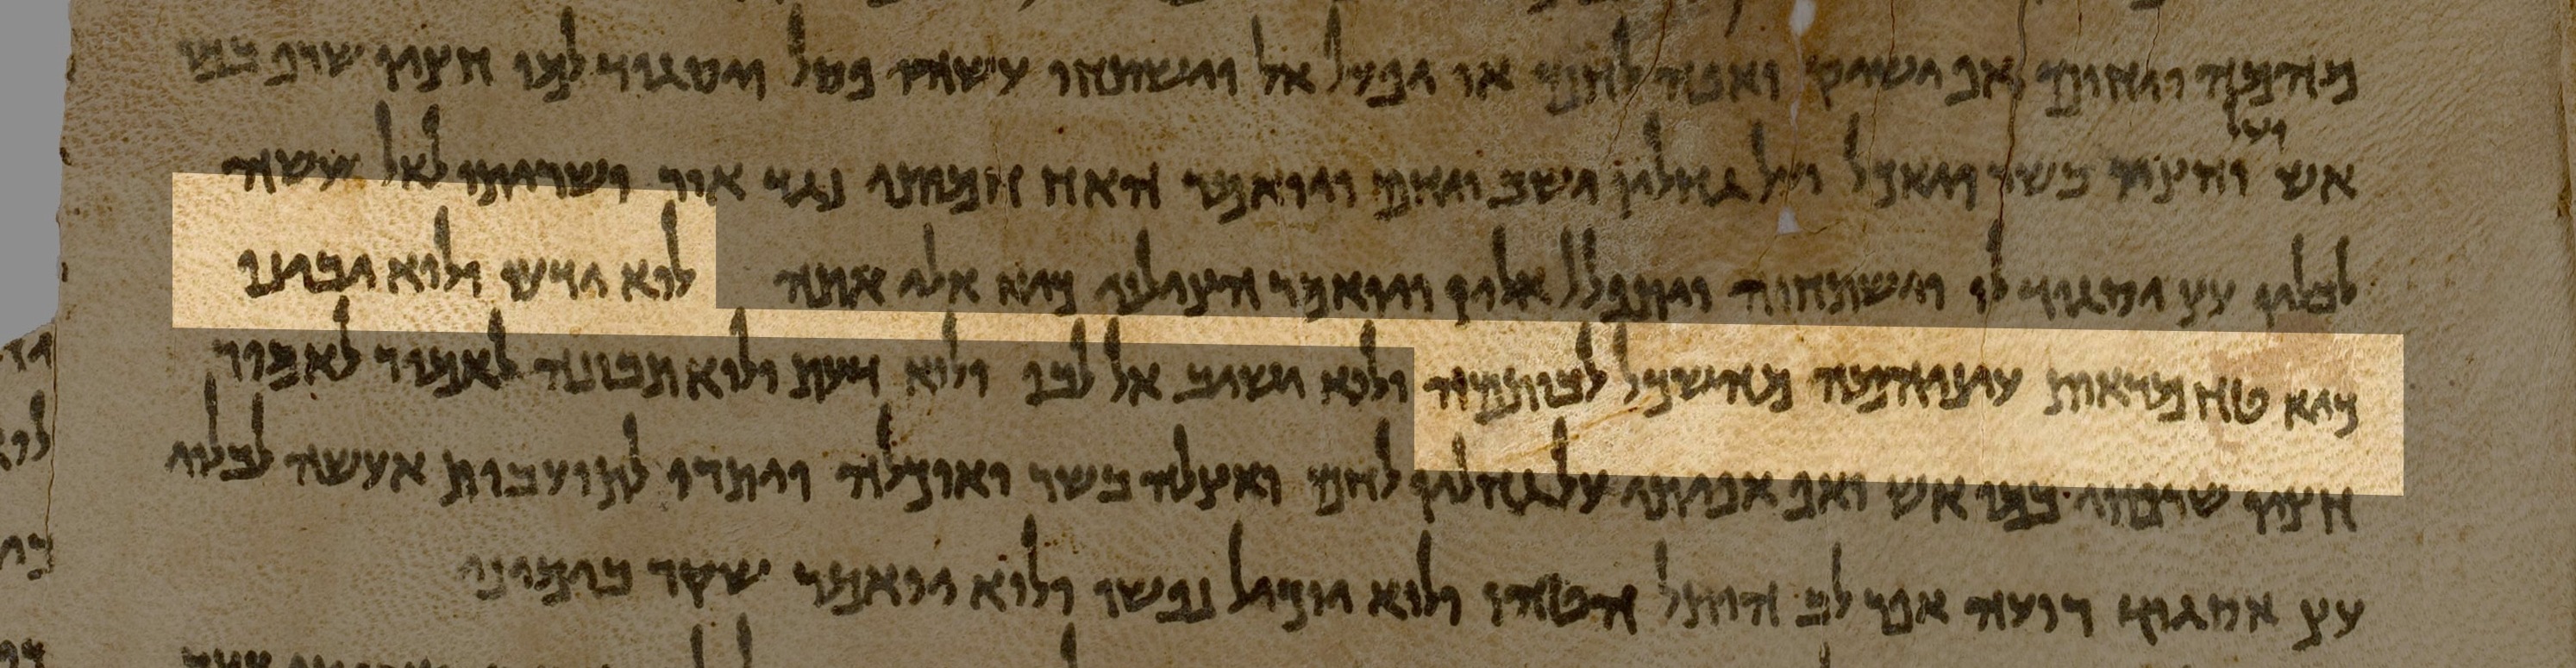 מהמה ויחום אף ישיק ואפה לחם או יפעל אל וישתחוו עשוהי פסל ויסגוד למו חציו שרף במו
ועל
אש וחציו בשר ויאכל ועל גחליו ישב ויחם ויואמר האח חמותי נגד אור ושריתו לאל עשה
לבליו עץ יסגוד לו וישתחוה ויתפלל אליו ויואמר הצילני כיא אלי אתה לוא ידעו ולוא יבינו
כיא טח מראות עיניהמה מהשכיל לבותמה ולוא ישוב אל לבו ולוא דעת ולוא תבונה לאמור לאמור
חציו שרפתי במו אש ואף אפיתי על גחליו לחם ואצלה בשר ואוכלה ויתרו לתועבות אעשה לבלוי
עץ אסגוד רועה אפר לב הותל הטהו ולוא יוכיל נפשו ולוא יואמר שקר בימיני